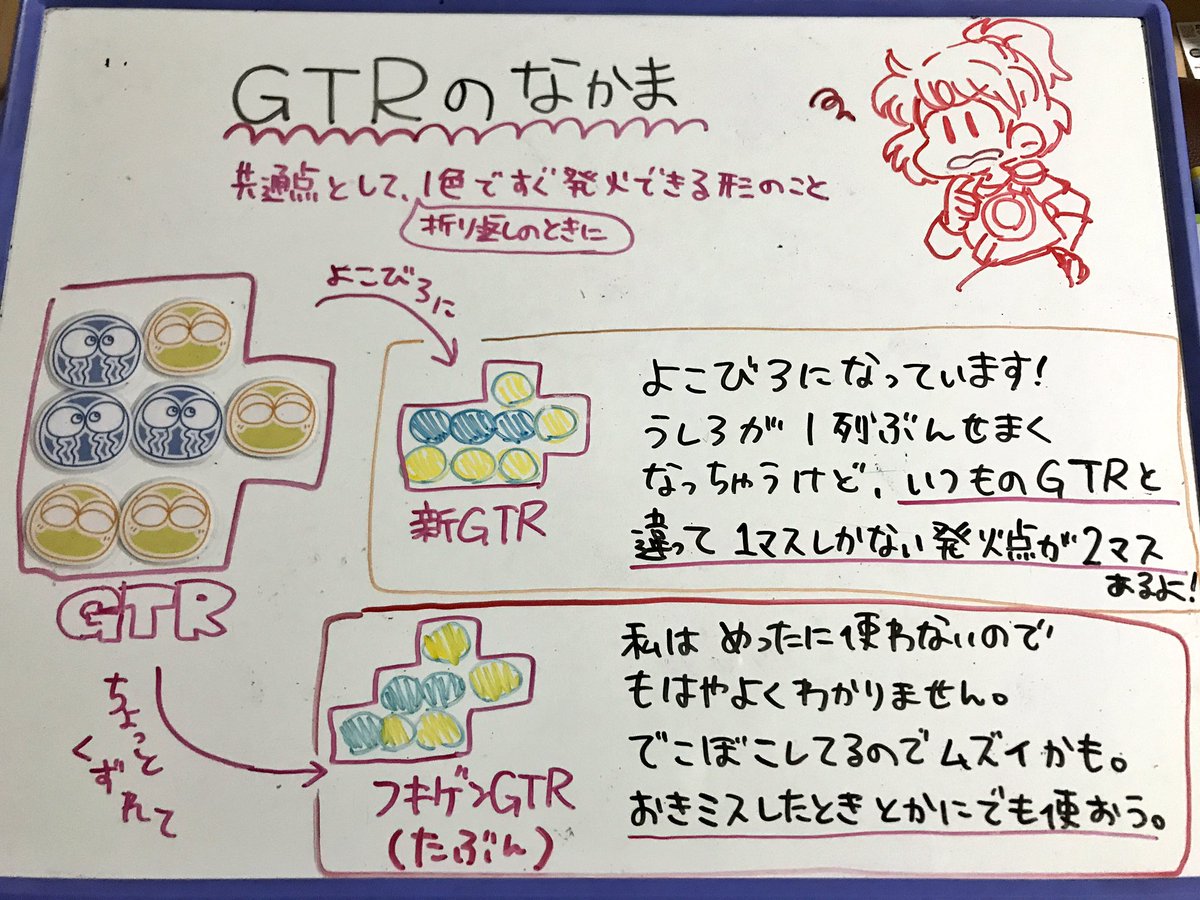 GTRのなかま
共通点として、1色ですぐ発火できる形のこと
折り返しのときに
よこびろに
GTR
新GTR
よこびろになっています!
うしろが1列ぶんせまく
なっちゃうけど、いつものGTRと
違って1マスしかない発火点が2マス
あるよ!
ちょっと
くずれて
フキゲンGTR
(たぶん)
私はめったに使わないので
もはやよくわかりません。
でこぼこしてるのでムズイかも。
おきミスしたときとかにでも使おう。